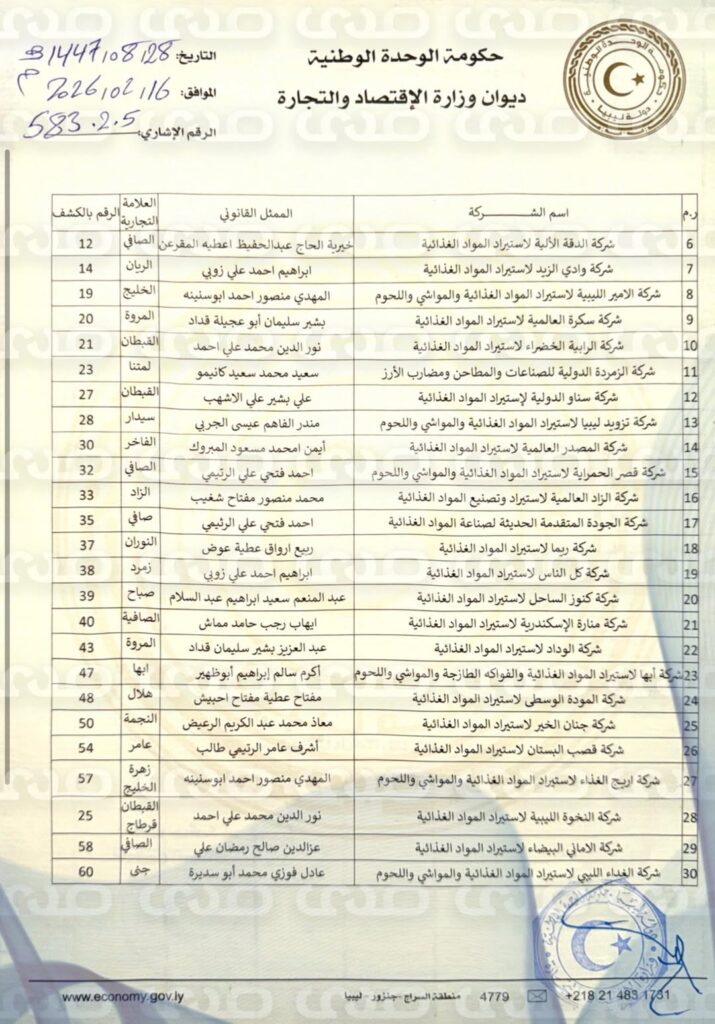 حكومة الوحدة الوطنية
ديوان وزارة الإقتصاد والتجارة
التاريخ: 1447/08/28 هـ
الموافق: 2026/02/16 م
الرقم الإشاري: 583.2.5
دولة ليبيا
ر.م اسم الشركة الممثل القانوني العلامة التجارية الرقم بالكشف
6 شركة الدقة الألية لاستيراد المواد الغذائية خيرية الحاج عبدالحفيظ اعطيه المقرعن الصافي 12
7 شركة وادي الزيد لاستيراد المواد الغذائية ابراهيم احمد علي زوبي الريان 14
8 شركة الامير الليبية لاستيراد المواد الغذائية والمواشي واللحوم المهدي منصور احمد ابوسنينه الخليج 19
9 شركة سكرة العالمية لاستيراد المواد الغذائية بشير سليمان أبو عجيلة قداد المروة 20
10 شركة الرابية الخضراء لاستيراد المواد الغذائية نور الدين محمد علي احمد القبطان 21
11 شركة الزمردة الدولية للصناعات والمطاحن ومضارب الأرز سعيد محمد سعيد كانيمو لمتنا 23
12 شركة سناو الدولية لإستيراد المواد الغذائية علي بشير علي الاشهب القبطان 27
13 شركة تزويد ليبيا لاستيراد المواد الغذائية والمواشي واللحوم مندر الفاهم عيسى الجربي سيدار 28
14 شركة المصدر العالمية لاستيراد المواد الغذائية أيمن امحمد مسعود المبروك الفاخر 30
15 شركة قصر الحمراية لاستيراد المواد الغذائية والمواشي واللحوم احمد فتحي علي الرتيمي الصافي 32
16 شركة الزاد العالمية لاستيراد وتصنيع المواد الغذائية محمد منصور مفتاح شغيب الزاد 33
17 شركة الجودة المتقدمة الحديثة لصناعة المواد الغذائية احمد فتحي علي الرئيمي صافي 35
18 شركة ريما لاستيراد المواد الغذائية ربيع ارواق عطية عوض النوران 37
19 شركة كل الناس لاستيراد المواد الغذائية ابراهيم احمد علي زوبي زمرد 38
20 شركة كنوز الساحل لاستيراد المواد الغذائية عبد المنعم سعيد ابراهيم عبد السلام صباح 39
21 شركة منارة الإسكندرية لاستيراد المواد الغذائية ايهاب رجب حامد مماش الصافية 40
22 شركة الوداد لاستيراد المواد الغذائية عبد العزيز بشير سليمان قداد المروة 43
23 شركة أبها لاستيراد المواد الغذائية والفواكه الطازجة والمواشي واللحوم أكرم سالم إبراهيم أبوظهير ابها 47
24 شركة المودة الوسطى لاستيراد المواد الغذائية مفتاح عطية مفتاح احبيش هلال 48
25 شركة جنان الخير لاستيراد المواد الغذائية معاذ محمد عبد الكريم الرعيض النجمة 50
26 شركة قصب البستان لاستيراد المواد الغذائية أشرف عامر الرتيمي طالب عامر 54
27 شركة اريج الغذاء لاستيراد المواد الغذائية والمواشي واللحوم المهدي منصور احمد ابوسنينه زهرة الخليج 57
28 شركة النخوة الليبية لاستيراد المواد الغذائية نور الدين محمد علي احمد القبطان قرطاج 25
29 شركة الاماني البيضاء لاستيراد المواد الغذائية عزالدين صالح رمضان علي الصافي 58
30 شركة الغداء الليبي لاستيراد المواد الغذائية والمواشي واللحوم عادل فوزي محمد أبو سديرة جنى 60
www.economy.gov.ly منطقة السراج -جنزور- ليبيا 4779 +218 21 483 1731